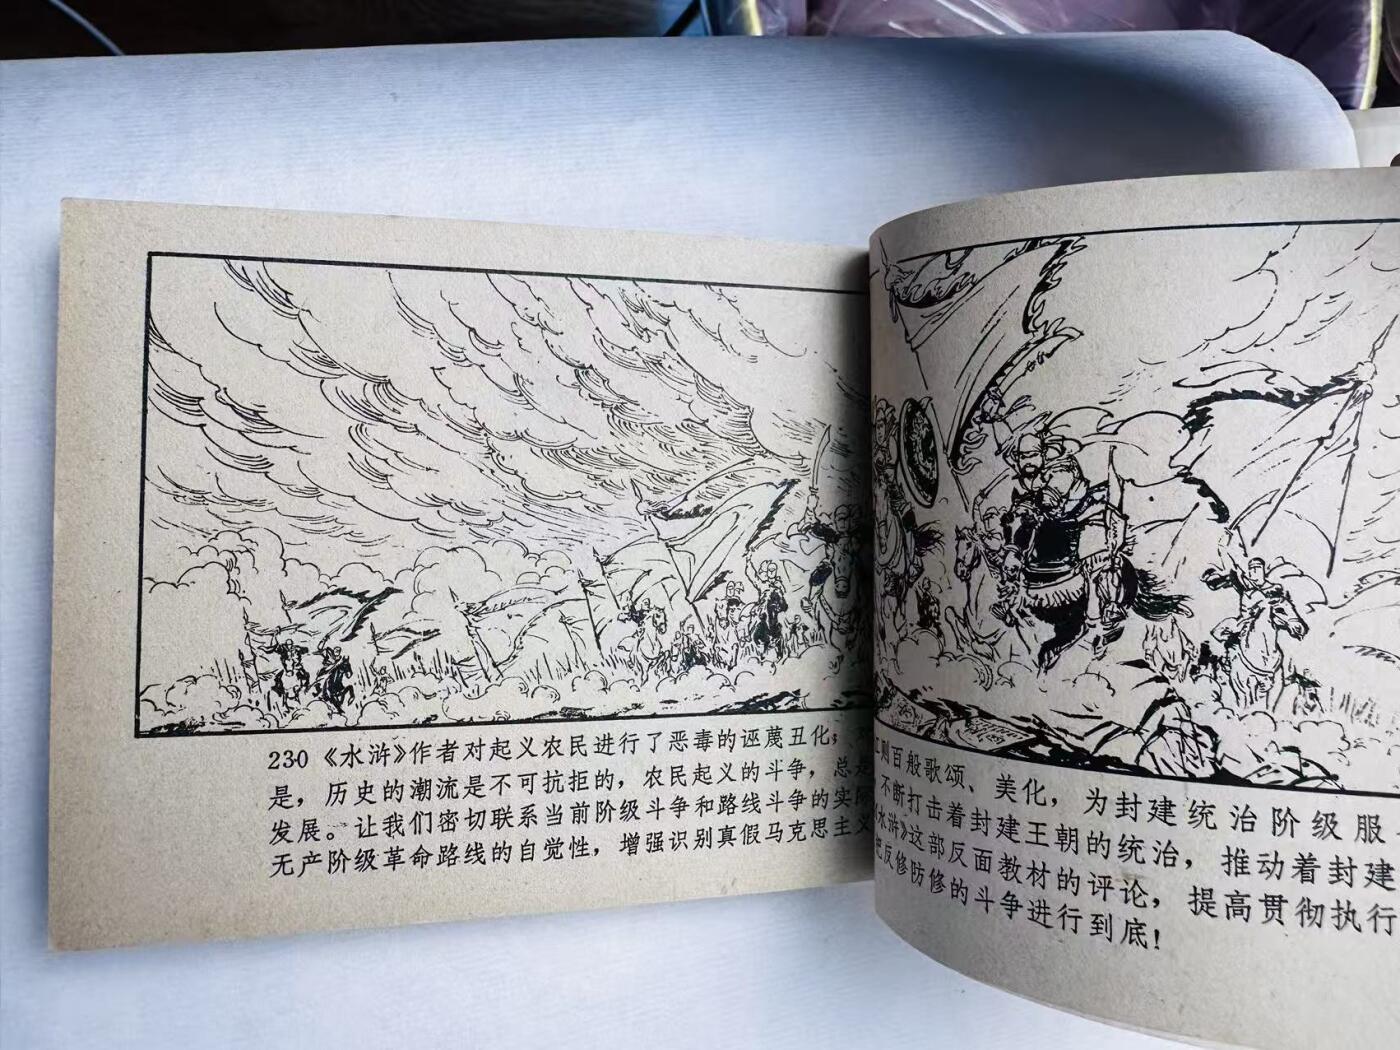 230 《水浒》作者对起义农民进行了恶毒的诬蔑丑化；
则百般歌颂、美化，为封建统治阶级服
是，历史的潮流是不可抗拒的，农民起义的斗争，总是
不断打击着封建王朝的统治，推动着封建
发展。让我们密切联系当前阶级斗争和路线斗争的实际
《水浒》这部反面教材的评论，提高贯彻执行
无产阶级革命路线的自觉性，增强识别真假马克思主义
把反修防修的斗争进行到底！